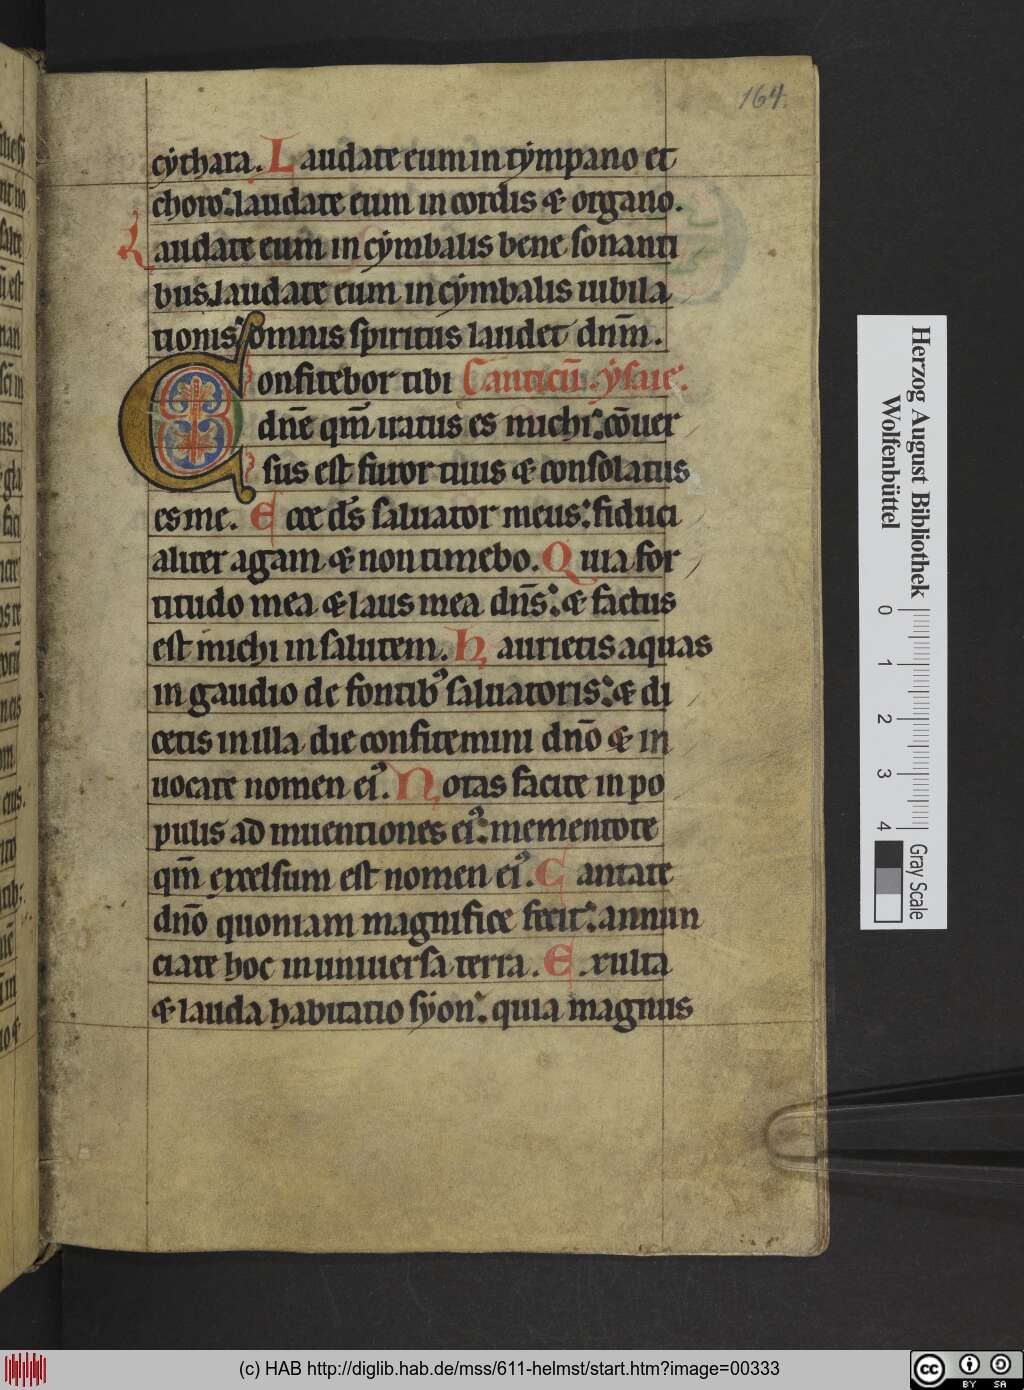 164.
cythara. Laudate eum in tympano et
choro: laudate eum in cordis & organo.
Laudate eum in cymbalis bene sonanti
bus. laudate eum in cymbalis iubila
tionis: omnis spiritus laudet dnm̄.
Confitebor tibi Canticū. ysaie.
dn̄e qm̄ iratus es michi: cōuer
sus est furor tuus & consolatus
es me. Ecce ds̄ saluator meus: fiduci
aliter agam & non timebo. Quia for
titudo mea & laus mea dn̄s: & factus
est michi in salutem. Haurietis aquas
in gaudio de fontibꝰ saluatoris: & di
cetis in illa die confitemini dn̄o & in
uocate nomen eiꝰ. Notas facite in po
pulis adinuentiones eiꝰ: mementote
qm̄ excelsum est nomen eiꝰ. Cantate
dn̄o quoniam magnifice fecit: annun
ciate hoc in uniuersa terra. Exulta
& lauda habitatio syon: quia magnus
Herzog August Bibliothek
Wolfenbüttel
0 1 2 3 4
Gray Scale
(c) HAB http://diglib.hab.de/mss/611-helmst/start.htm?image=00333
cc BY SA